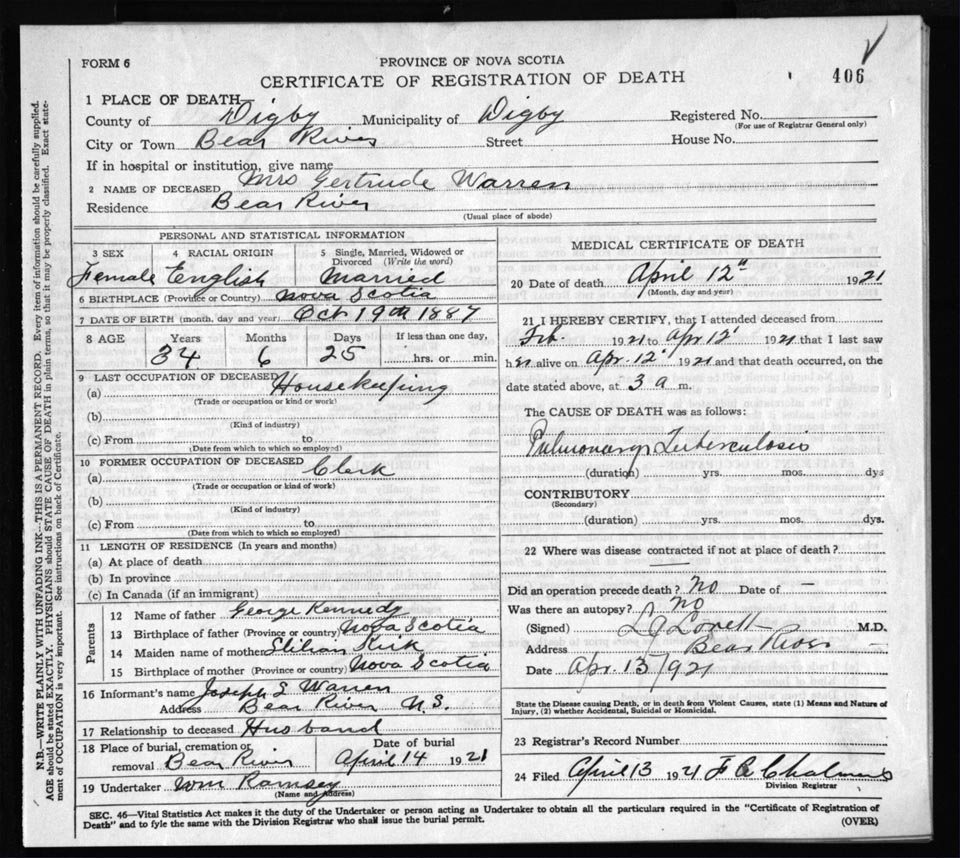 FORM 6
PROVINCE OF NOVA SCOTIA
CERTIFICATE OF REGISTRATION OF DEATH
406
1 PLACE OF DEATH—
County of Digby Municipality of Digby Registered No.
(For use of Registrar General only)
City or Town Bear River Street House No.
If in hospital or institution, give name
2 NAME OF DECEASED Mrs Gertrude Warren
Residence Bear River
(Usual place of abode)
PERSONAL AND STATISTICAL INFORMATION
3 SEX 4 RACIAL ORIGIN 5 Single, Married, Widowed or Divorced (Write the word)
Female English Married
6 BIRTHPLACE (Province or Country) Nova Scotia
7 DATE OF BIRTH (month, day and year) Oct 19th 1887
8 AGE Years Months Days If less than one day,
34 6 25 hrs. or min.
9 LAST OCCUPATION OF DECEASED
(a) Housekeeping
(Trade or occupation or kind or work)
(b)
(Kind of industry)
(c) From to
(Date from which to which so employed)
10 FORMER OCCUPATION OF DECEASED
(a) Clerk
(Trade or occupation or kind of work)
(b)
(Kind of industry)
(c) From to
(Date from which to which so employed)
11 LENGTH OF RESIDENCE (In years and months)
(a) At place of death
(b) In province
(c) In Canada (if an immigrant)
Parents
12 Name of father George Kennedy
13 Birthplace of father (Province or country) Nova Scotia
14 Maiden name of mother Kirk
15 Birthplace of mother (Province or country) Nova Scotia
16 Informant's name Joseph S Warren
Address Bear River N.S.
17 Relationship to deceased Husband
18 Place of burial, cremation or removal Bear River
Date of burial April 14 1921
19 Undertaker Wm Ramsey
(Name and Address)
MEDICAL CERTIFICATE OF DEATH
20 Date of death April 12th 1921
(Month, day and year)
21 I HEREBY CERTIFY, that I attended deceased from
Feb. 1921 to Apr 12 1921 that I last saw
her alive on Apr. 12 1921 and that death occurred, on the
date stated above, at 3 a m.
The CAUSE OF DEATH was as follows:
Pulmonary Tuberculosis
(duration) yrs. mos. dys
CONTRIBUTORY
(Secondary)
(duration) yrs. mos. dys.
22 Where was disease contracted if not at place of death?
Did an operation precede death? No Date of —
Was there an autopsy? No
(Signed) L J Lovett M.D.
Address Bear River
Date Apr. 13/921
State the Disease causing Death, or in death from Violent Causes, state (1) Means and Nature of
Injury, (2) whether Accidental, Suicidal or Homicidal.
23 Registrar's Record Number
24 Filed April 13 1921 F Chalmers
Division Registrar
SEC. 46—Vital Statistics Act makes it the duty of the Undertaker or person acting as Undertaker to obtain all the particulars required in the "Certificate of Registration of
Death" and to fyle the same with the Division Registrar who shall issue the burial permit.
(OVER)
N.B.—WRITE PLAINLY WITH UNFADING INK—THIS IS A PERMANENT RECORD. Every item of information should be carefully supplied.
AGE should be stated EXACTLY. PHYSICIANS should STATE CAUSE OF DEATH in plain terms, so that it may be properly classified. Exact state-
ment of OCCUPATION is very important. See instructions on back of Certificate.